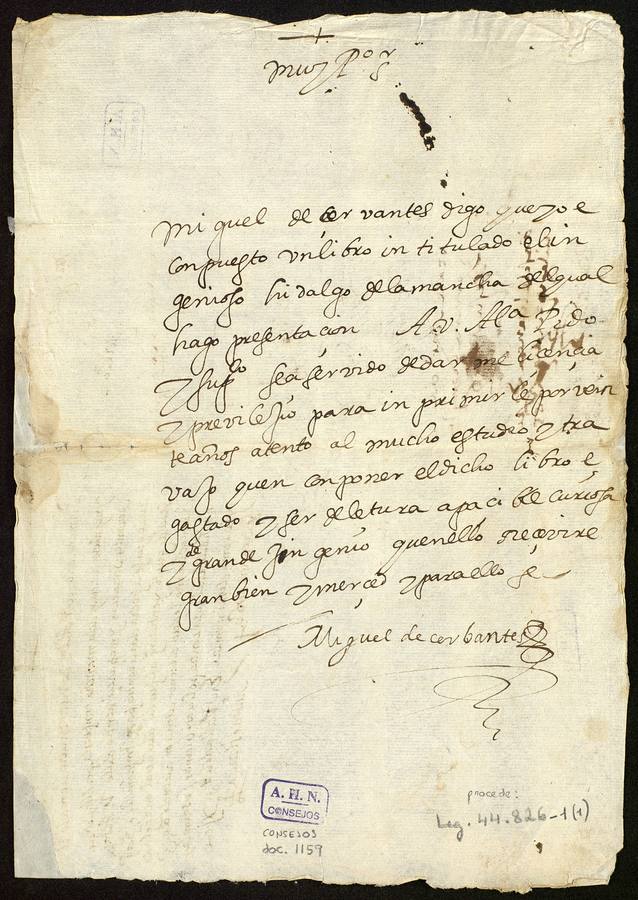 muy P.or s
Miguel de cervantes digo que yo e
conpuesto un libro intitulado el in
genioso hidalgo de la mancha del qual
hago presentacion A V. Al.a Pido
y sup.co sea servido de darme licencia
y previlejio para inprimirle por vein
te años atento al mucho estudio y tra
vajo que en conponer el dicho libro e
gastado y ser de letura apacible curiosa
y de grande injenio que en ello rrecevire
gran bien y merced y para ello &
Miguel de cerbantes
A. H. N.
CONSEJOS
CONSEJOS
doc. 1159
procede:
Leg. 44.826-1(1)